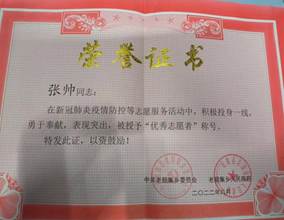 荣誉证书
张帅同志：
在新冠肺炎疫情防控等志愿服务活动中，积极投身一线，
勇于奉献，表现突出，被授予“优秀志愿者”称号。
特发此证，以资鼓励！
中共老观集乡委员会
二〇二二年